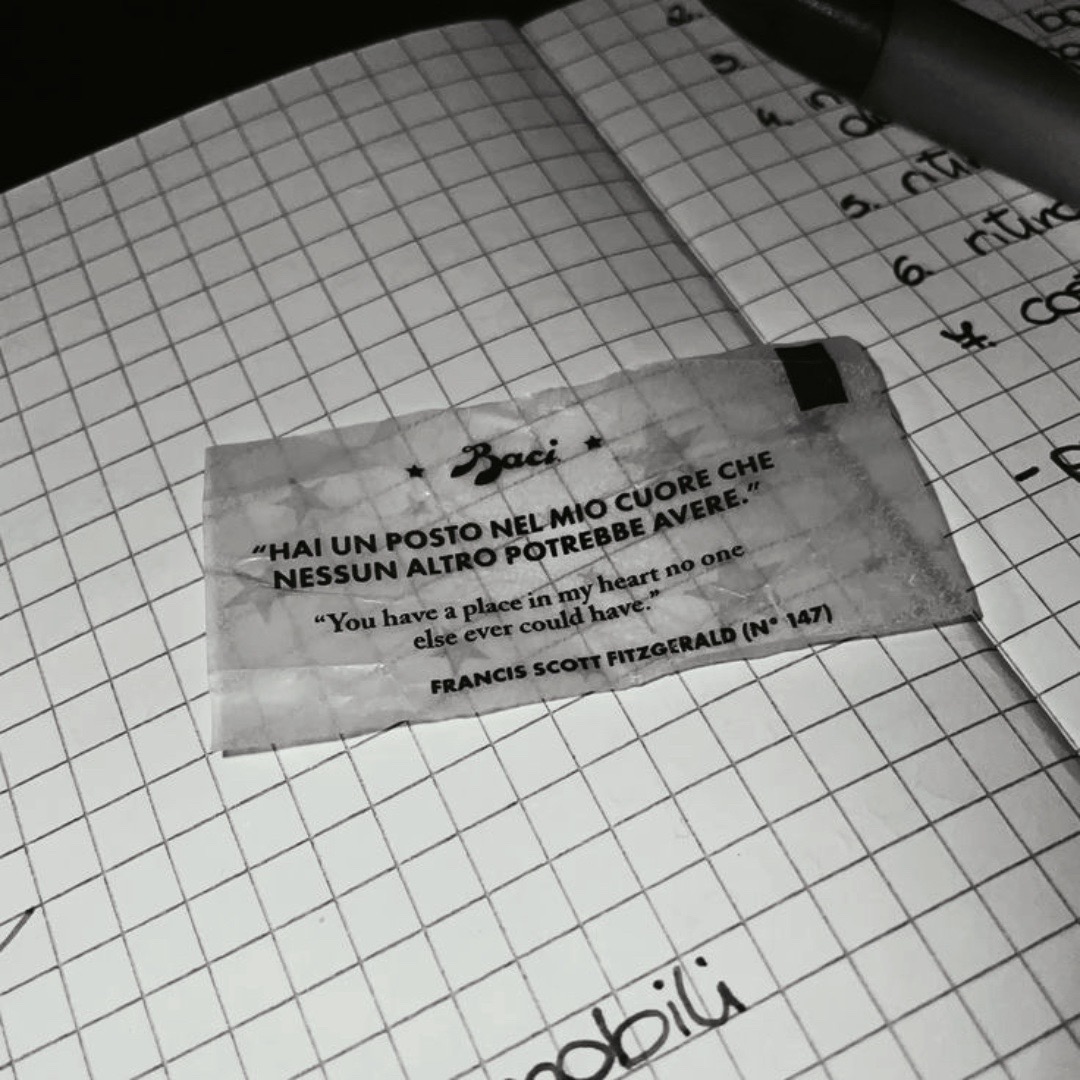 2.
3.
4.
5.
6.
7.
Baci
“HAI UN POSTO NEL MIO CUORE CHE
NESSUN ALTRO POTREBBE AVERE.”
“You have a place in my heart no one
else ever could have.”
FRANCIS SCOTT FITZGERALD (N° 147)